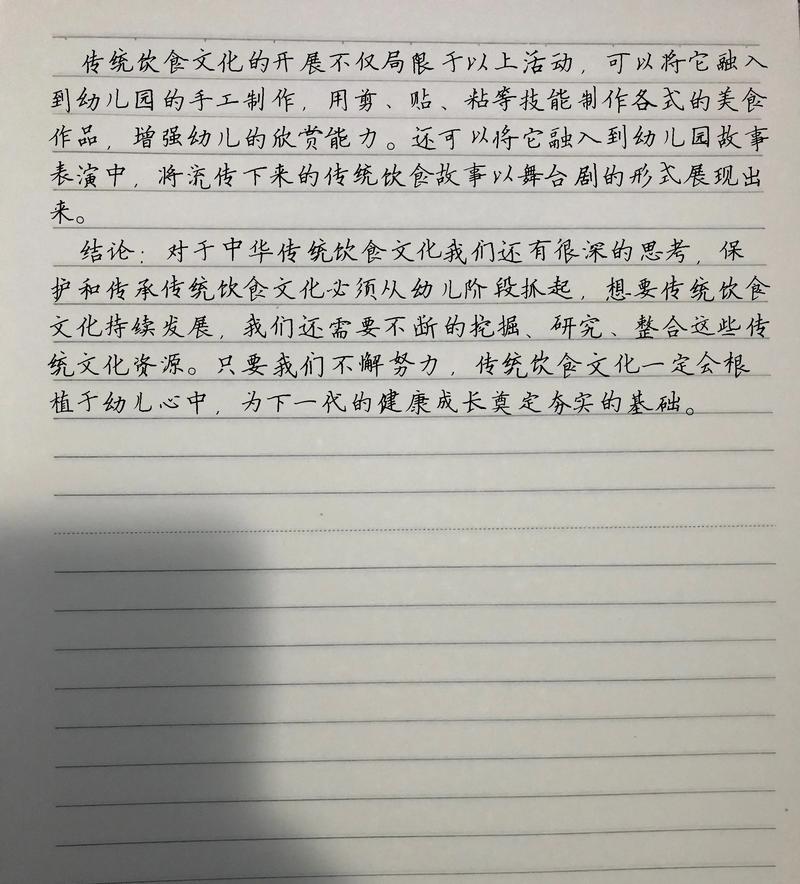 传统饮食文化的开展不仅局限于以上活动，可以将它融入
到幼儿园的手工制作，用剪、贴、粘等技能制作各式的美食
作品，增强幼儿的欣赏能力。还可以将它融入到幼儿园故事
表演中，将流传下来的传统饮食故事以舞台剧的形式展现出
来。
结论：对于中华传统饮食文化我们还有很深的思考，保
护和传承传统饮食文化必须从幼儿阶段抓起，想要传统饮食
文化持续发展，我们还需要不断的挖掘、研究、整合这些传
统文化资源。只要我们不懈努力，传统饮食文化一定会根
植于幼儿心中，为下一代的健康成长奠定夯实的基础。